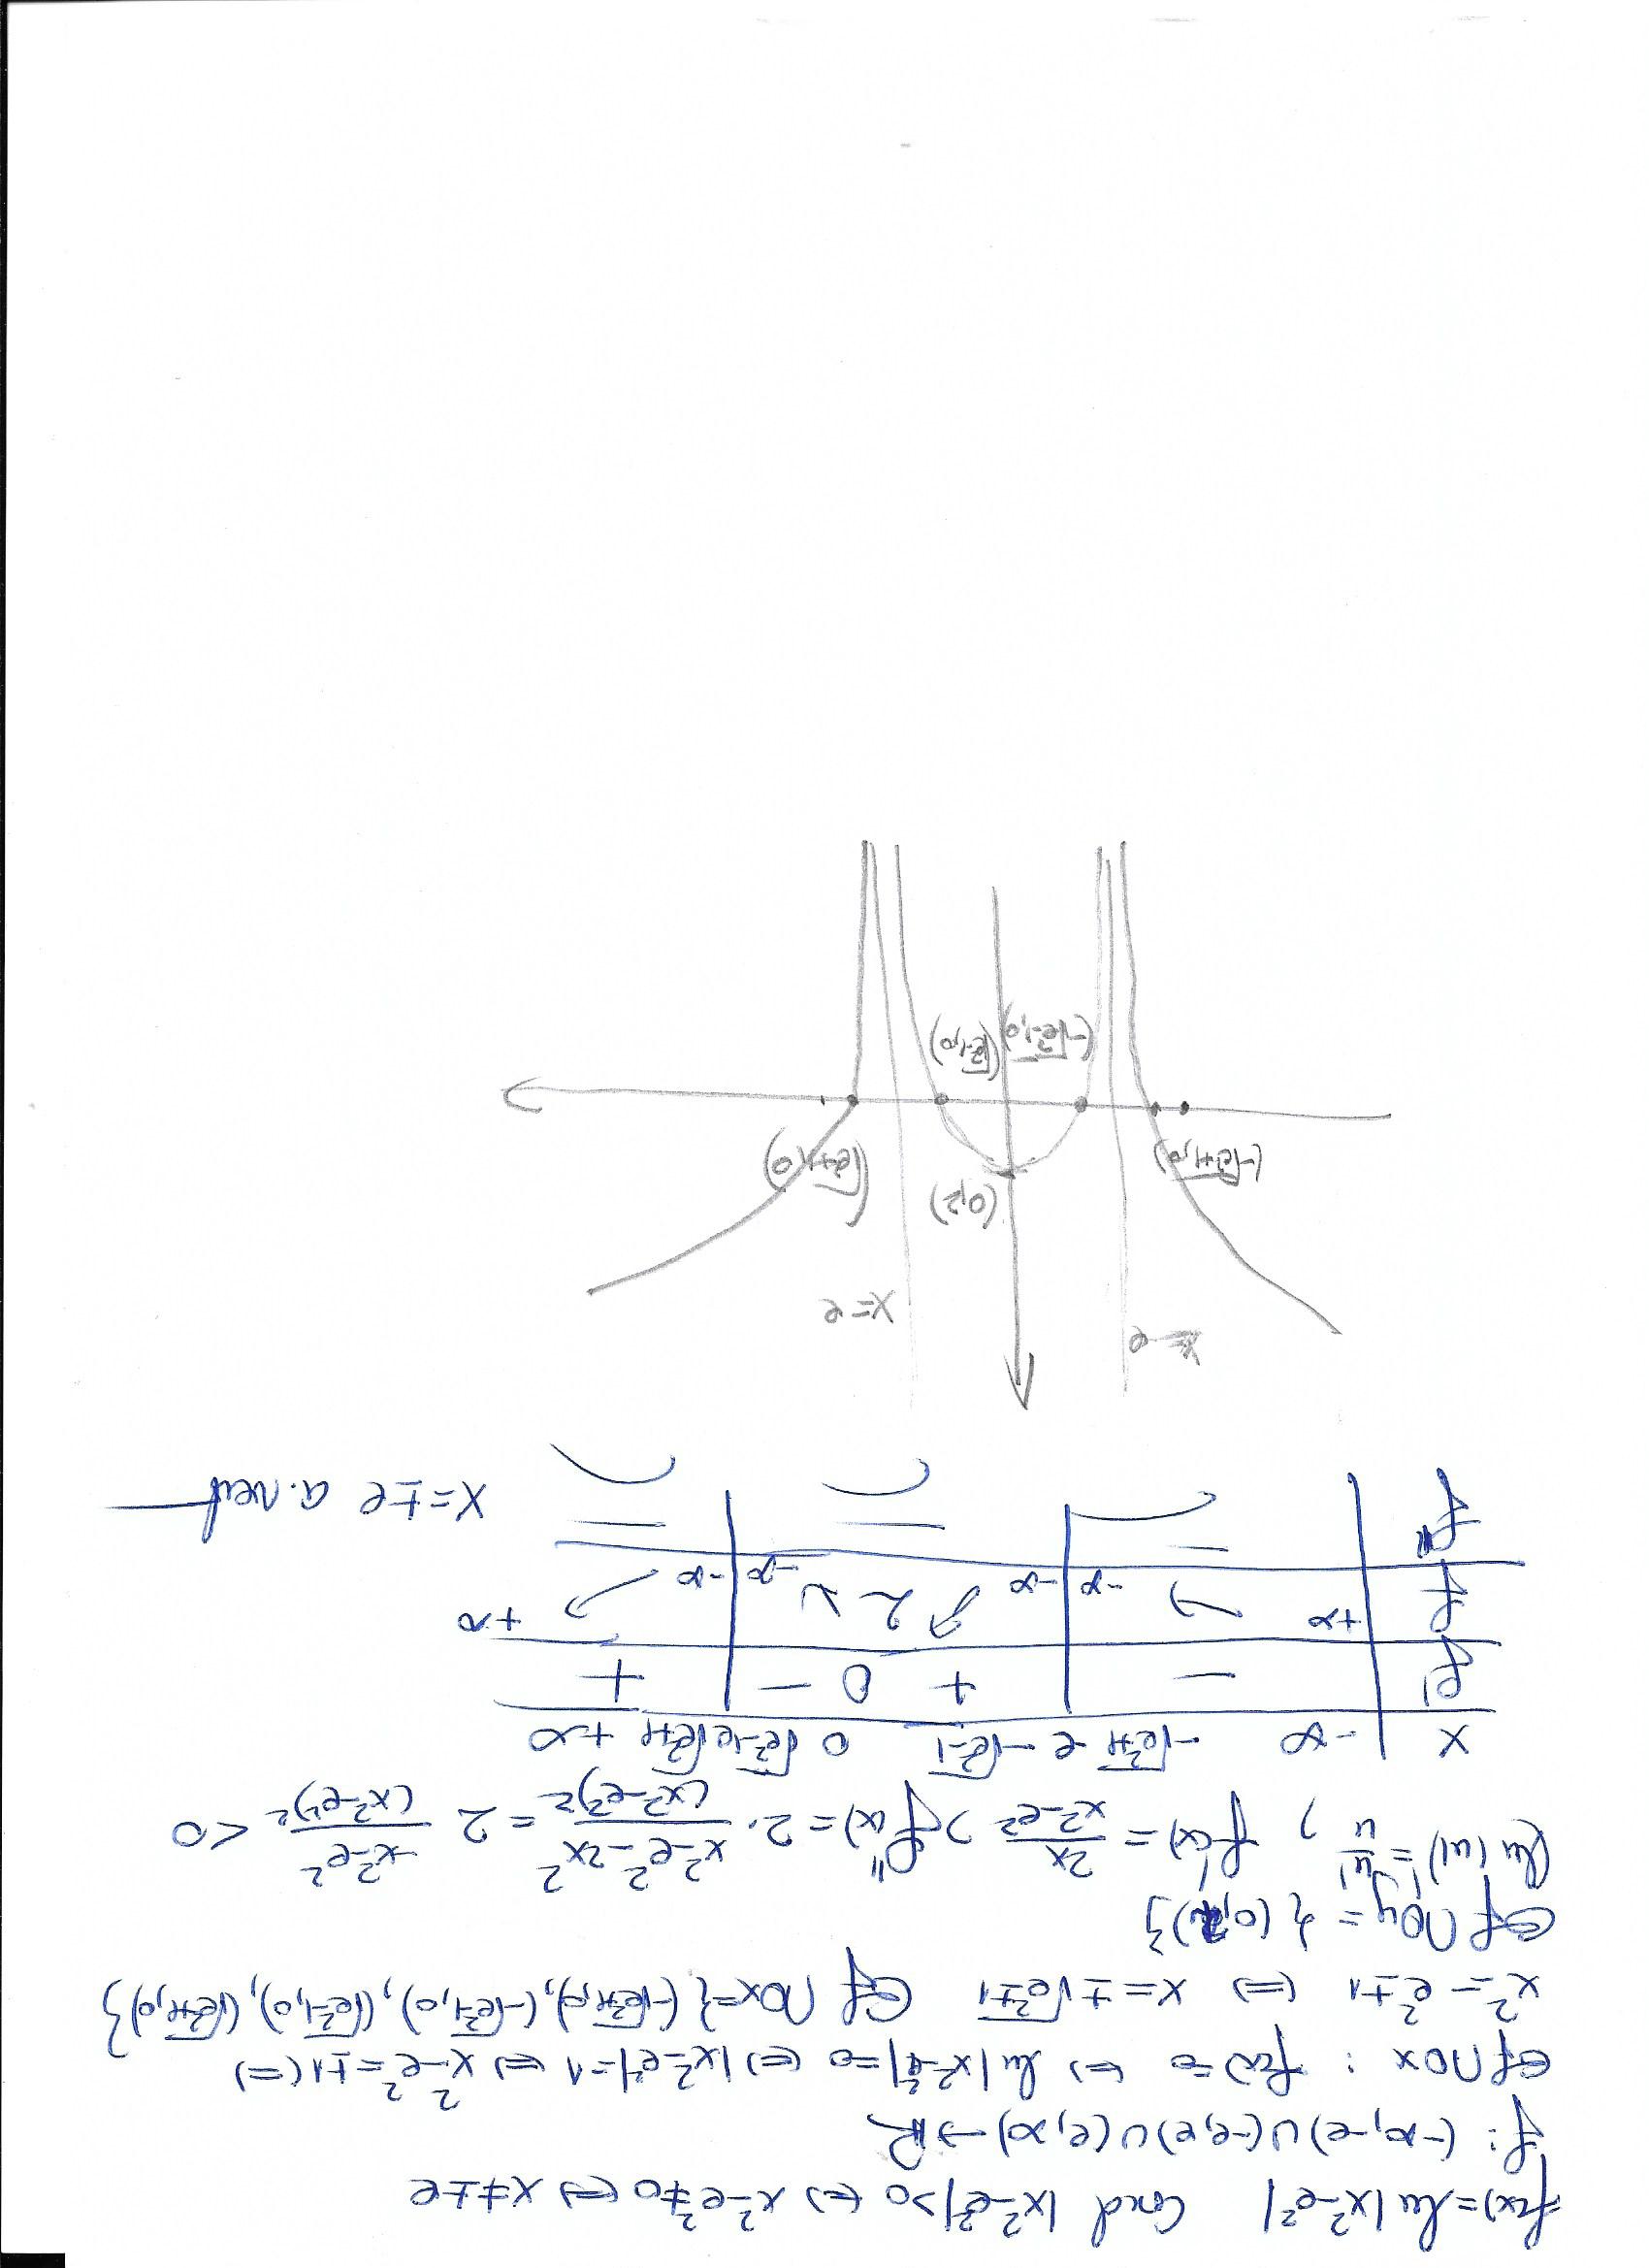 f(x)=ln|x²-e²| Cond |x²-e²|>0 ⇔ x²-e²≠0 ⇔ x≠±e
f: (-∞,-e)∪(-e,e)∪(e,∞)→ℝ
Gf∩Ox : f(x)=0 ⇔ ln|x²-e²|=0 ⇔ |x²-e²|=1 ⇔ x²-e²=±1 ⇔
x²=e²±1 ⇔ x=±√(e²±1) Gf∩Ox={(-√(e²+1),0),(-√(e²-1),0),(√(e²-1),0),(√(e²+1),0)}
Gf∩Oy={(0,2)}
(ln|u|)'=u'/u, f'(x)=2x/(x²-e²), f''(x)=2·(x²-e²-2x²)/(x²-e²)²=2 (-x²-e²)/(x²-e²)²<0
x -∞ -√(e²+1) -e -√(e²-1) 0 √(e²-1) e √(e²+1) +∞
f' - + 0 - +
f +∞ ↘ -∞ -∞ ↗ 2 ↘ -∞ -∞ ↗ +∞
f'' - - -
x=±e a. vert
x=-e
x=e
(0,2)
(-√(e²+1),0) (√(e²+1),0)
(-√(e²-1),0) (√(e²-1),0)